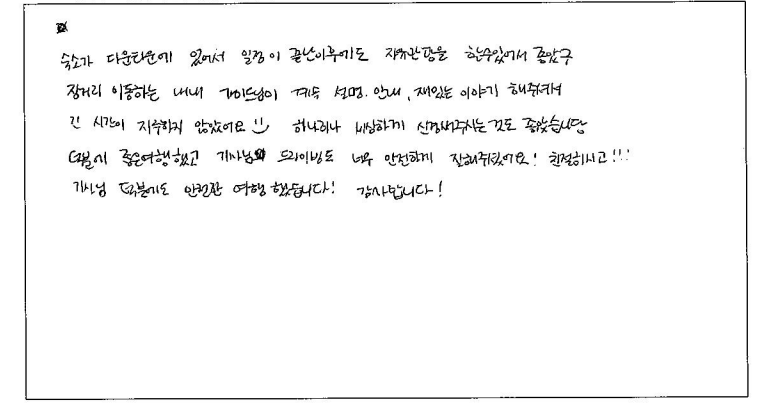 숙소가 다운타운에 있어서 일정이 끝난이후에도 자유관광을 할수있어서 좋았구
장거리 이동하는 내내 가이드님이 계속 설명. 안내, 재밌는 이야기 해주셔서
긴 시간이 지루하지 않았어요 하나하나 세심하게 신경써주시는 것도 좋았습니당
덕분에 좋은여행했고 기사님 드라이빙도 너무 안전하게 잘해주셨어요! 친절하시고!!!
기사님 덕분에도 안전한 여행 했습니다! 감사합니다!